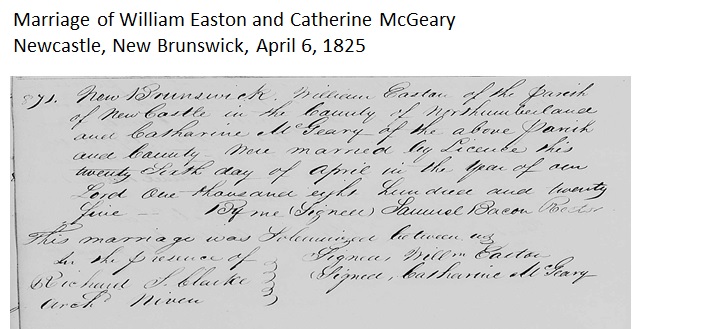 Marriage of William Easton and Catherine McGeary
Newcastle, New Brunswick, April 6, 1825
871. New Brunswick. William Easton of the Parish
of New Castle in the County of Northumberland
and Catharine McGeary of the above Parish
and County - Were married by Licence this
twenty Sixth day of April in the Year of our
Lord One thousand eight hundred and twenty
five — By me (Signed) Samuel Bacon
This marriage was Solemnized between us
In the presence of Signed, Willm Easton
Richard S. Clarke Signed, Catharine McGeary
Archd Niven